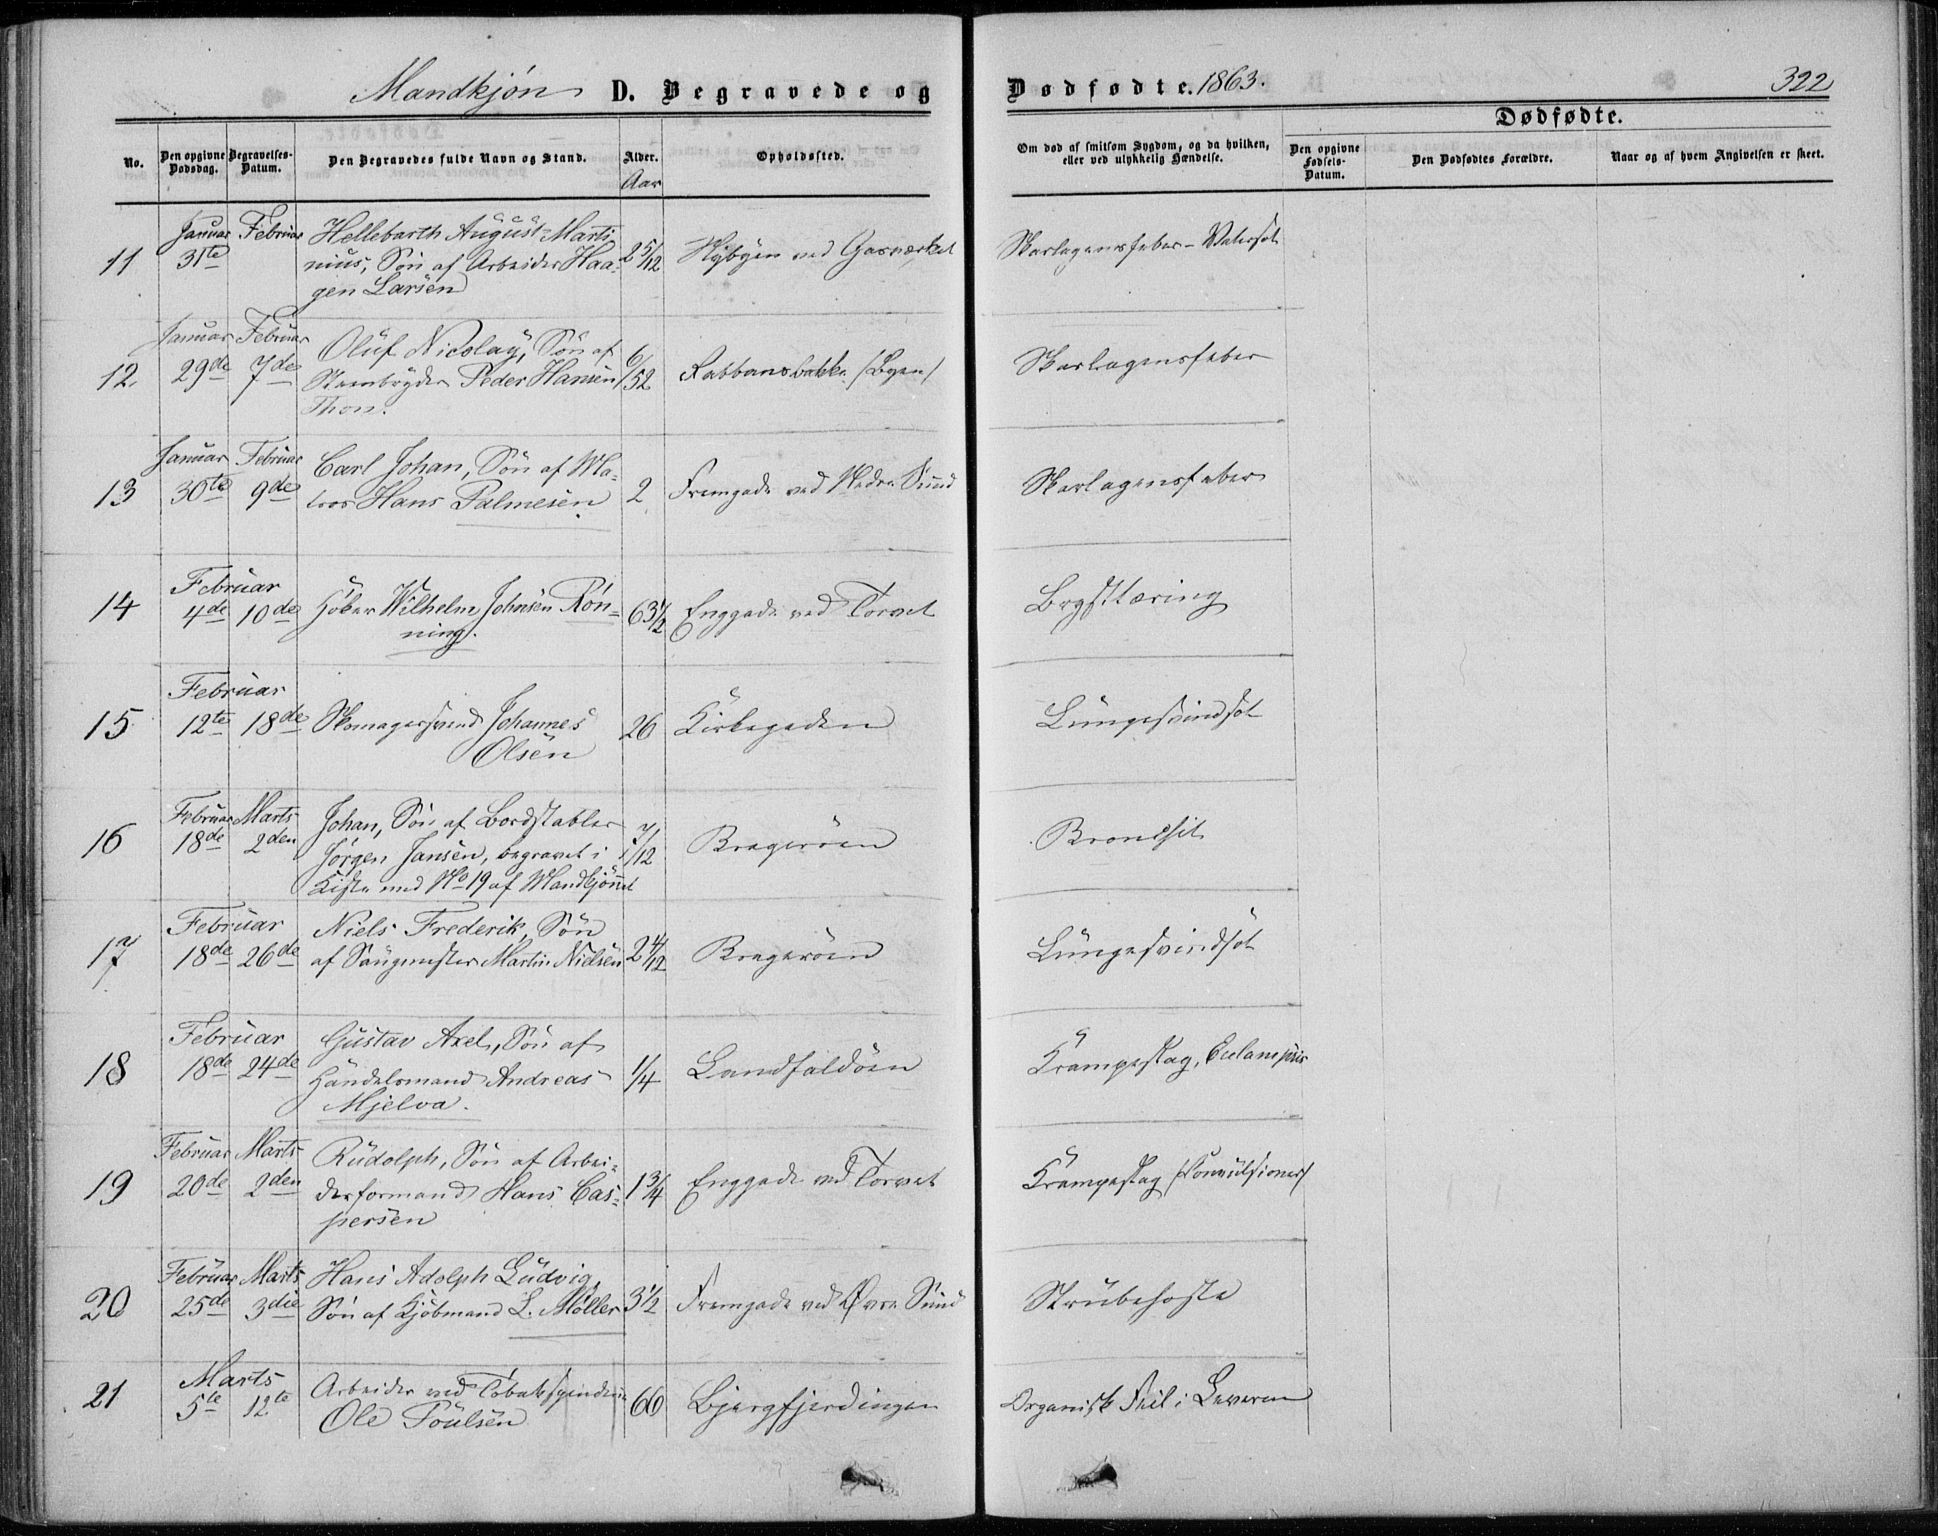 Mandkjøn D. Begravede og Dødfødte. 1863. 322
Dødfødte.
No. Den opgivne Dødsdag. Begravelses-Datum. Den Begravedes fulde Navn og Stand. Alder. Opholdssted. Om død af smitsom Sygdom, og da hvilken, eller ved ulykkelig Hændelse. Den opgivne Fødsels-Datum. Den Dødfødtes Forældre. Naar og af hvem Angivelsen er skeet.
Aar
Januar Februar Hellebarth August Marti
11 31te nius, Søn af Arbeider Haa- 2 5/12 Nybyen ved Gasværket Skarlagensfeber - Vatersot
gen Larsen
Januar Februar Oluf Nicolay, Søn af
12. 29de 7de Peder Hansen 6/52 Rabbansbakke (Byen) Skarlagensfeber
Thon.
Januar Februar Carl Johan, Søn af Ma-
13 30te 9de tros Hans Palmesen 2 Fremgade ved Nedre Sund Skarlagensfeber
Februar
14 4de 10de Wilhelm Johnsen Røn- 63 1/2 Enggade ved Torvet Brysttæring
ning.
Februar
15 12te 18de Skomagersvend Johannes 26 Kirkegaden Lungesvindsot
Olsen
Februar Marts Johan, Søn af Bordstabler
16 18de 2den Jørgen Jansen, begravet i 7/12 Bragerøen Bronchit
Kiste med No 19 af Mandkjønnet
Februar Niels Frederik, Søn
17 18de 26de af Martin Nielsen 2 4/12 Bragerøen Lungesvindsot
Februar Gustav Axel, Søn af
18 18de 24de Handelsmand Andreas 1/4 Landfaldøen Krampeslag, Eclampsis
Mjelva.
Februar Marts Rudolph, Søn af Arbei-
19 20de 2den derformand Hans Cas- 1 3/4 Enggade ved Torvet Krampeslag (Convulsioner)
persen
Februar Marts Hans Adolph Ludvig,
20 25de 3die Søn af Kjøbmand L. Møller 3 1/2 Fremgade ved Øvre Sund Strubehoste
Marts
21 5te 12te Arbeider ved Tobakspinderi 66 Bjergfjerdingen Organisk Feil i Leveren
Ole Poulsen